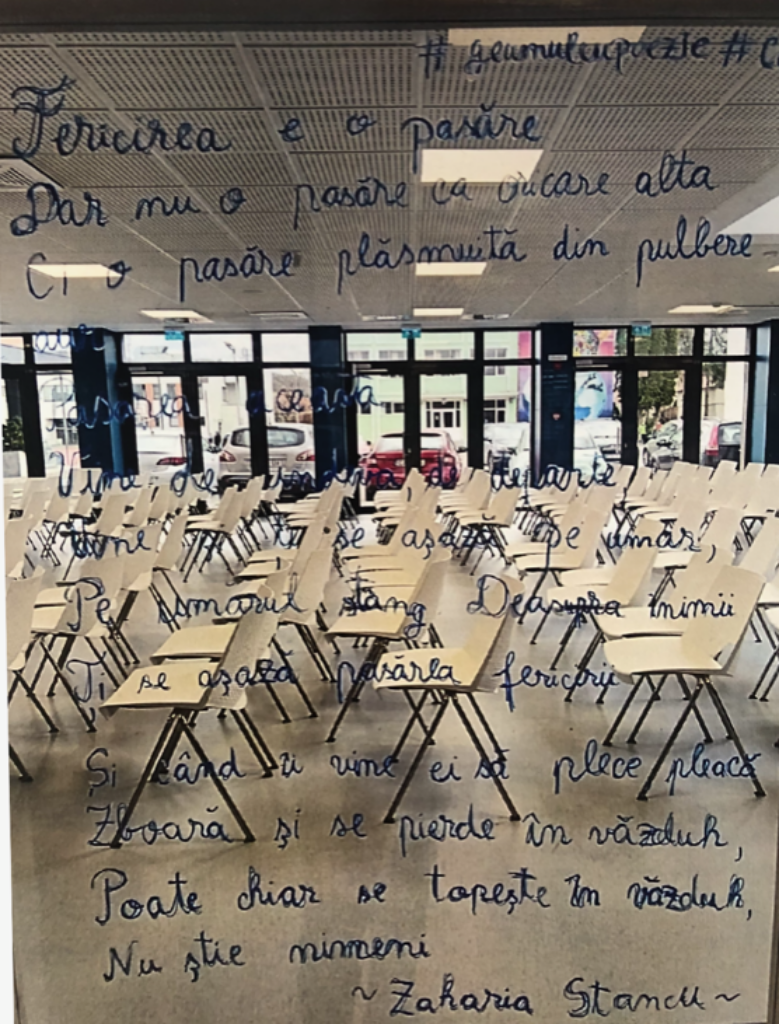 #geamulcupoezie #
Fericirea e o pasăre
Dar nu o pasăre ca oricare alta
Ci o pasăre plăsmuită din pulbere
aur
Pasărea aceasta
Vine de undeva, de departe,
Vine ți se așază pe umăr,
Pe umărul stâng Deasupra inimii
Ți se așază pasărea fericirii
Și când îi vine ei să plece pleacă
Zboară și se pierde în văzduh,
Poate chiar se topește în văzduh,
Nu știe nimeni
~ Zaharia Stancu ~